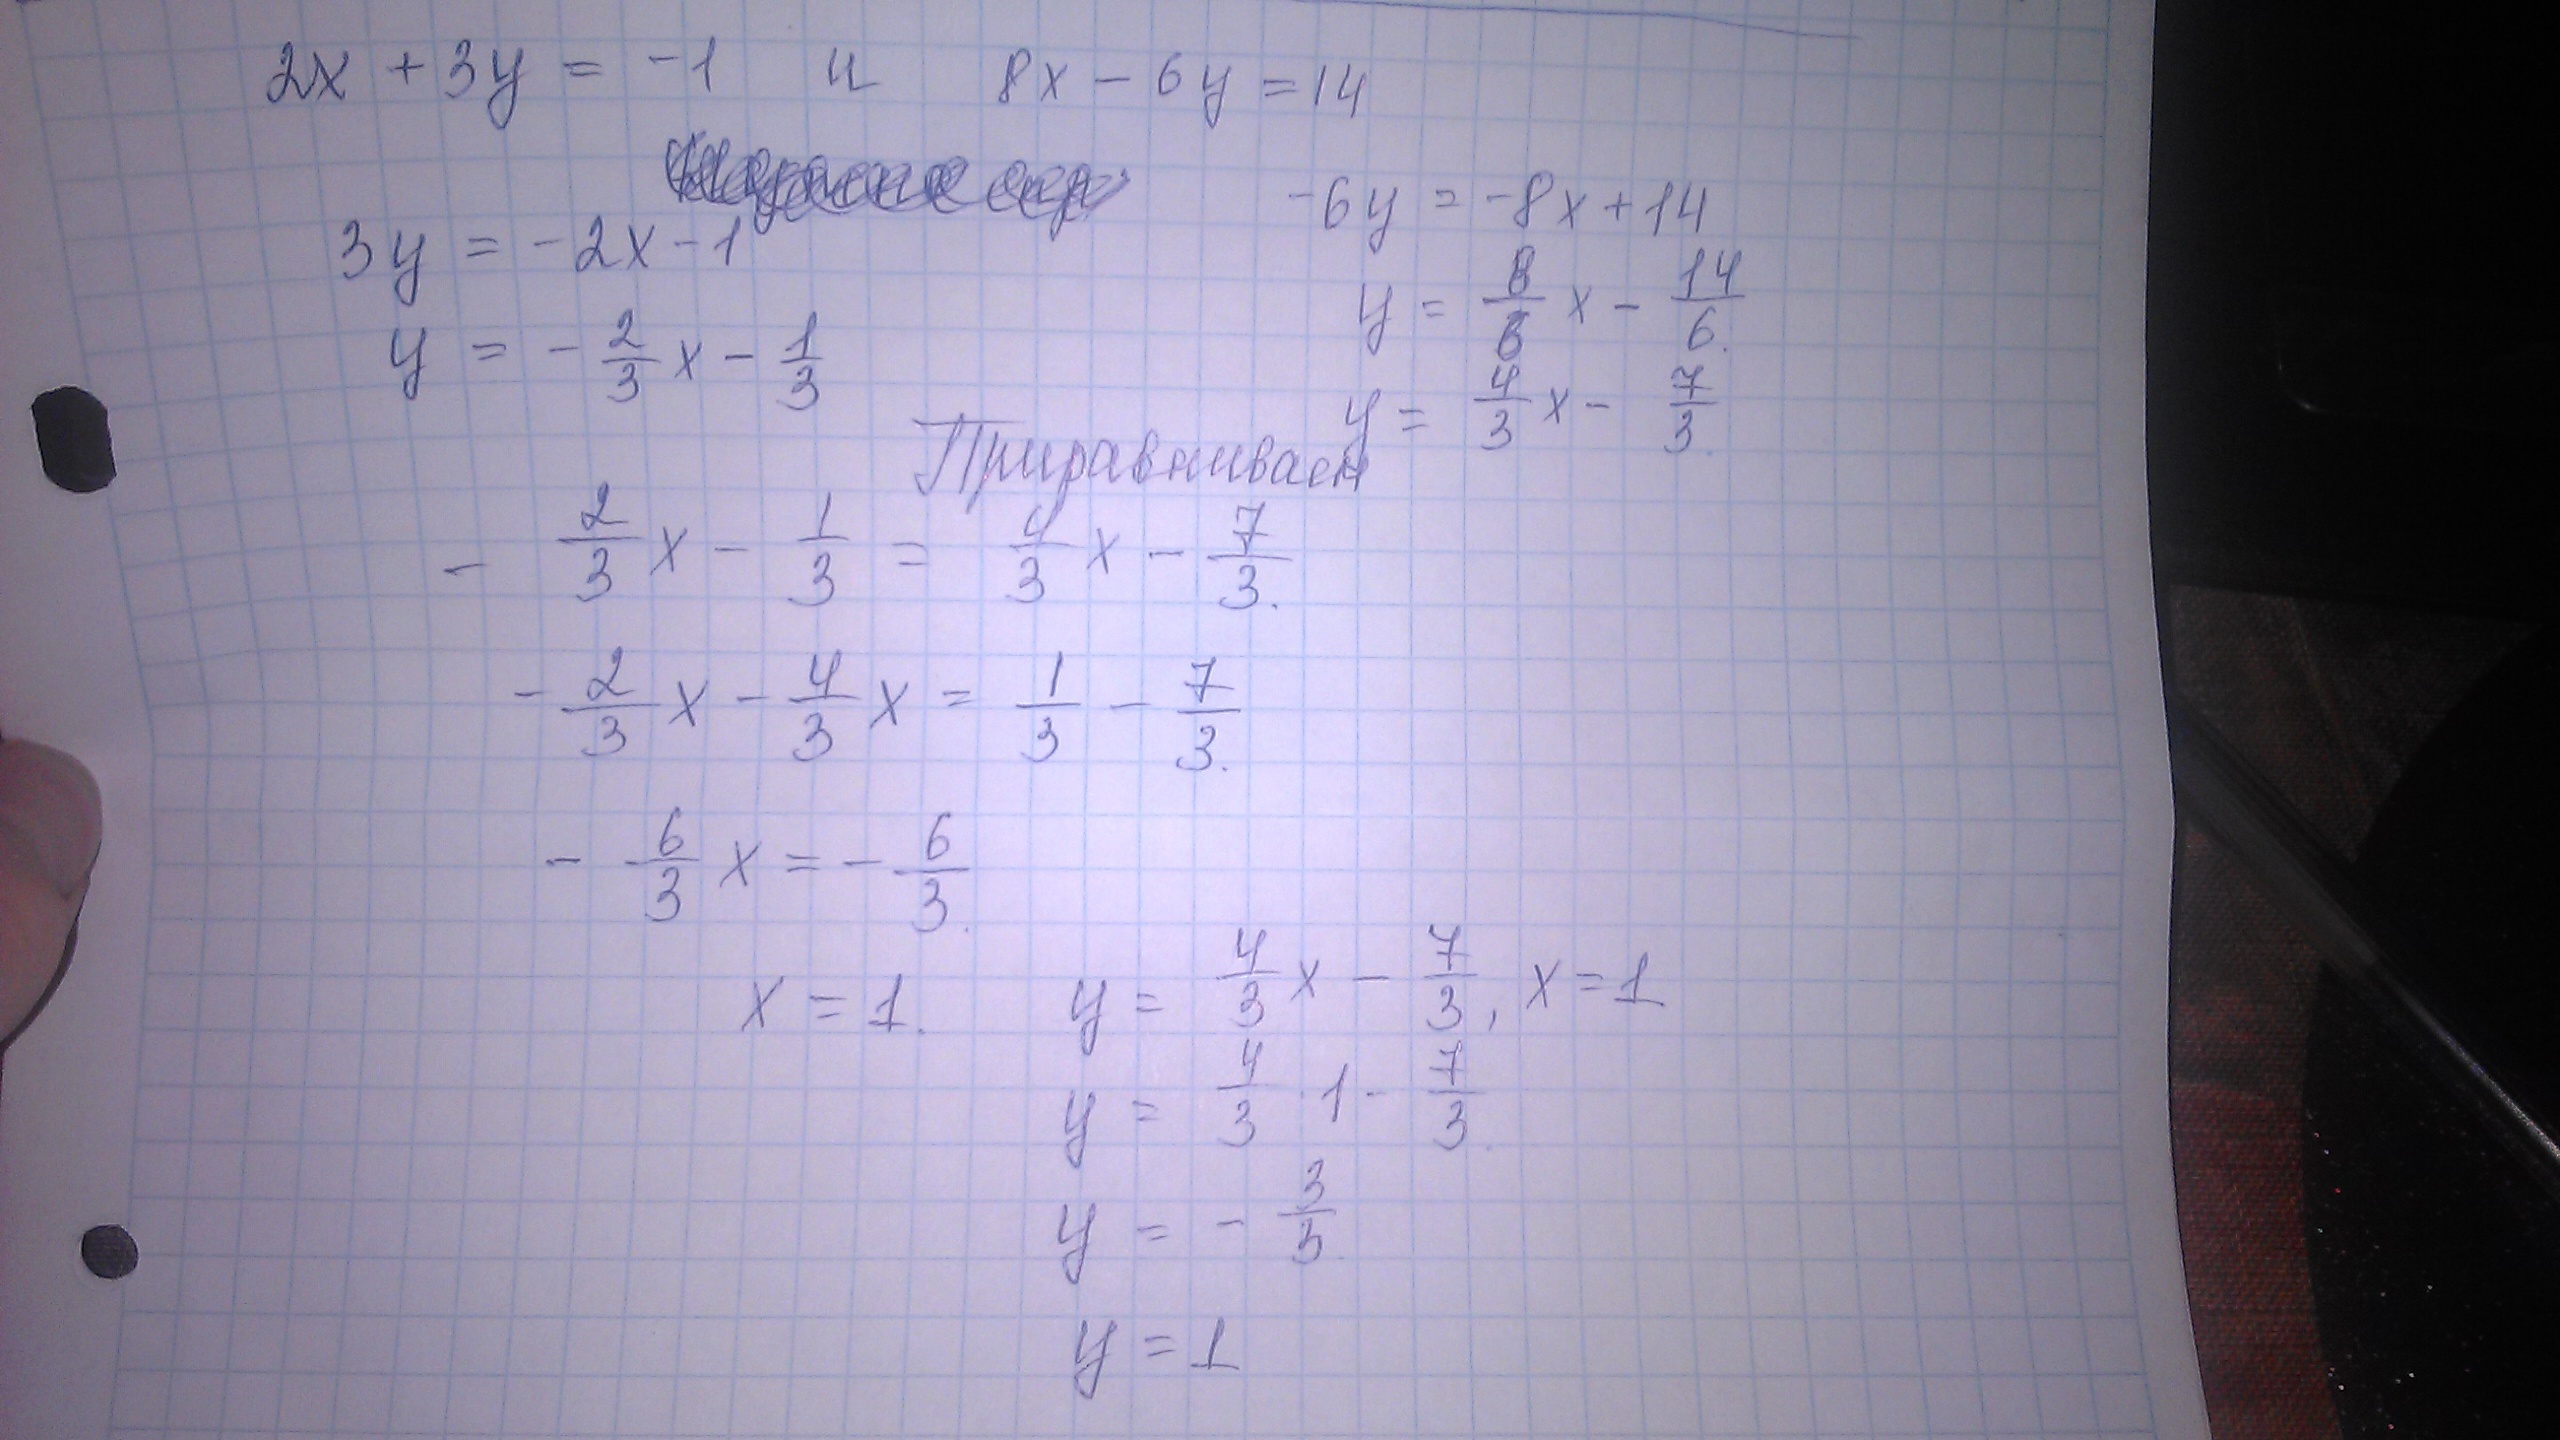 2x + 3y = -1 и 8x - 6y = 14
3y = -2x - 1
y = - 2/3 x - 1/3
-6y = -8x + 14
y = 8/6 x - 14/6.
y = 4/3 x - 7/3.
Приравниваем
- 2/3 x - 1/3 = 4/3 x - 7/3.
- 2/3 x - 4/3 x = 1/3 - 7/3.
- 6/3 x = - 6/3.
x = 1.
y = 4/3 x - 7/3, x = 1
y = 4/3 · 1 - 7/3.
y = - 3/3.
y = 1